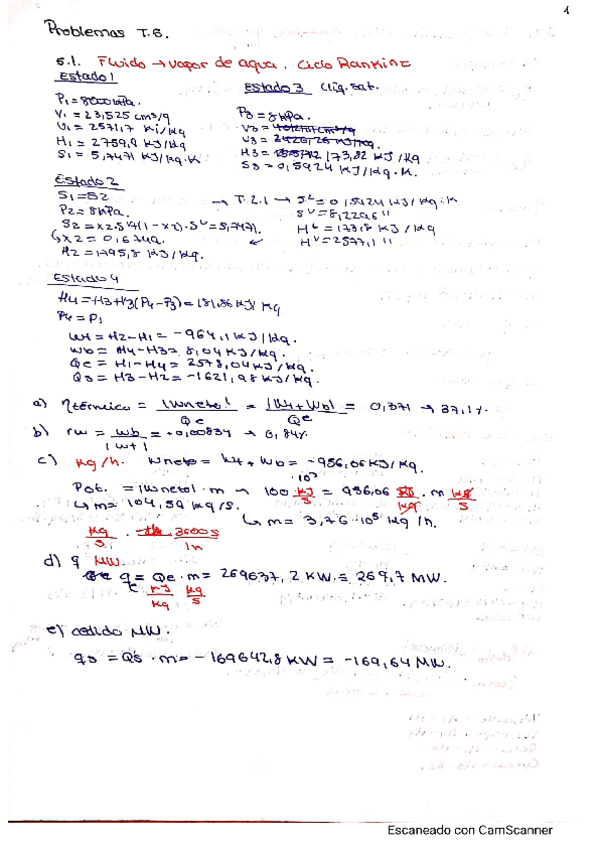 1
Problemas T.6.
6.1. Fluido → vapor de agua. Ciclo Rankine
Estado 1
P1 = 8000 kPa.
V1 = 23,525 cm³/g
U1 = 2571,7 KJ/Kg
H1 = 2759,9 KJ/Kg
S1 = 5,7471 KJ/Kg·K
Estado 3 Liq. sat.
P3 = 8 kPa.
V3 =
U3 =
H3 = 173,82 KJ/Kg
S3 = 0,5924 KJ/Kg·K.
Estado 2
S1 = S2
P2 = 8 kPa.
S2 = x2·Sᵛ + (1-x2)·Sᴸ = 5,7471.
↳ x2 = 0,6749.
H2 = 1795,8 KJ/Kg.
→ T.2.1 → Sᴸ = 0,5924 KJ/Kg·K
Sᵛ = 8,2296 "
Hᴸ = 173,8 KJ/Kg
Hᵛ = 2577,1 "
Estado 4
H4 = H3 + V3(P4-P3) = 181,86 KJ/Kg
P4 = P1
Wt = H2-H1 = -964,1 KJ/Kg.
Wb = H4-H3 = 8,04 KJ/Kg.
Qe = H1-H4 = 2578,04 KJ/Kg.
Qs = H3-H2 = -1621,98 KJ/Kg
a) ηtérmico = |Wneto| / Qe = |Wt+Wb| / Qe = 0,371 → 37,1%.
b) rw = Wb / |Wt| = 0,00834 → 0,84%
c) Kg/h. Wneto = Wt + Wb = -956,06 KJ/Kg.
Pot. = |Wneto|·m → 100·10³ KJ/s = 956,06 KJ/Kg · m Kg/s
↳ m = 104,59 Kg/s.
↳ m = 3,76·10⁵ Kg/h.
Kg/s · 3600s/1h
d) q MW.
qe = Qe·m = 269637,2 KW = 269,7 MW.
KJ/Kg Kg/s
e) cedido MW.
qs = Qs·m = -169642,8 KW = -169,64 MW.
Escaneado con CamScanner